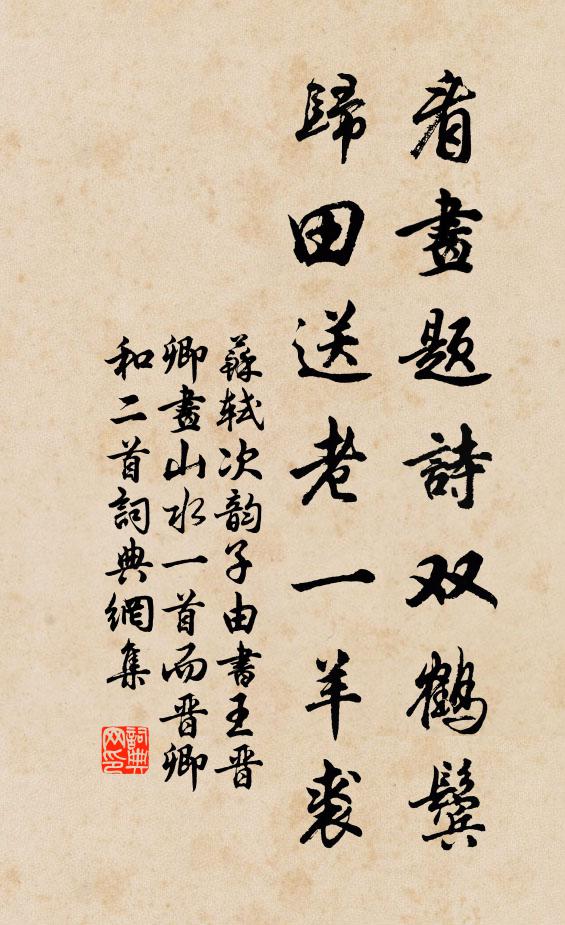 看畫題詩双鶴鬓
歸田送老一羊裘
蘇轼次韵子由書王晋
卿畫山水一首而晋卿
和二首詞典網集
詞典
网印